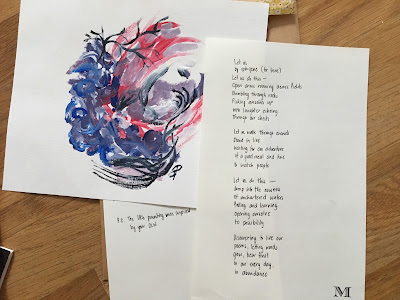 Let us
by
Let us do this —
Open arms running across fields
through
Picking up
our laughter echoing
through our chests
Let us walk through crowds
Stand in line
waiting for an adventure
of a past next and time
to watch people
Let us do this —
Jump into the
of unchartered waters
Feeling and learning
opening ourselves
to possibility
Discovering to live our
poems, letting words
grow, bear fruit
in our every day
in abundance
M
P.S. The little painting was inspired
by your